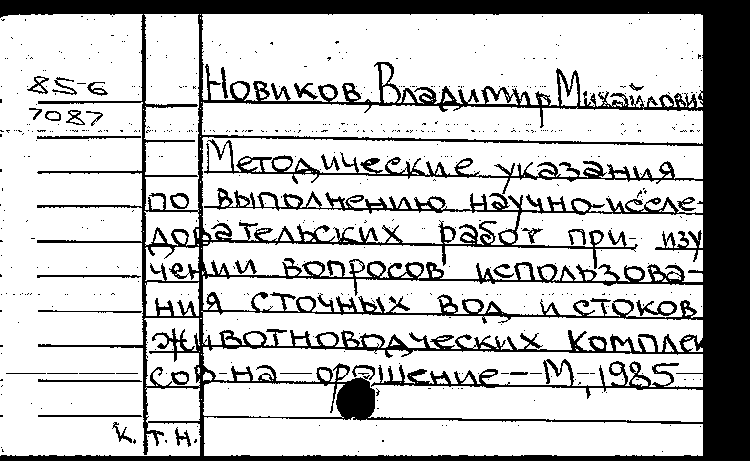 856
7087
Новиков, Владимир Михайлович
Методические указания
по выполнению научно-иссле-
довательских работ при изу
чении вопросов использова-
ния сточных вод и стоков
животноводческих комплек
сов на орошение – М, 1985
К.т.н.